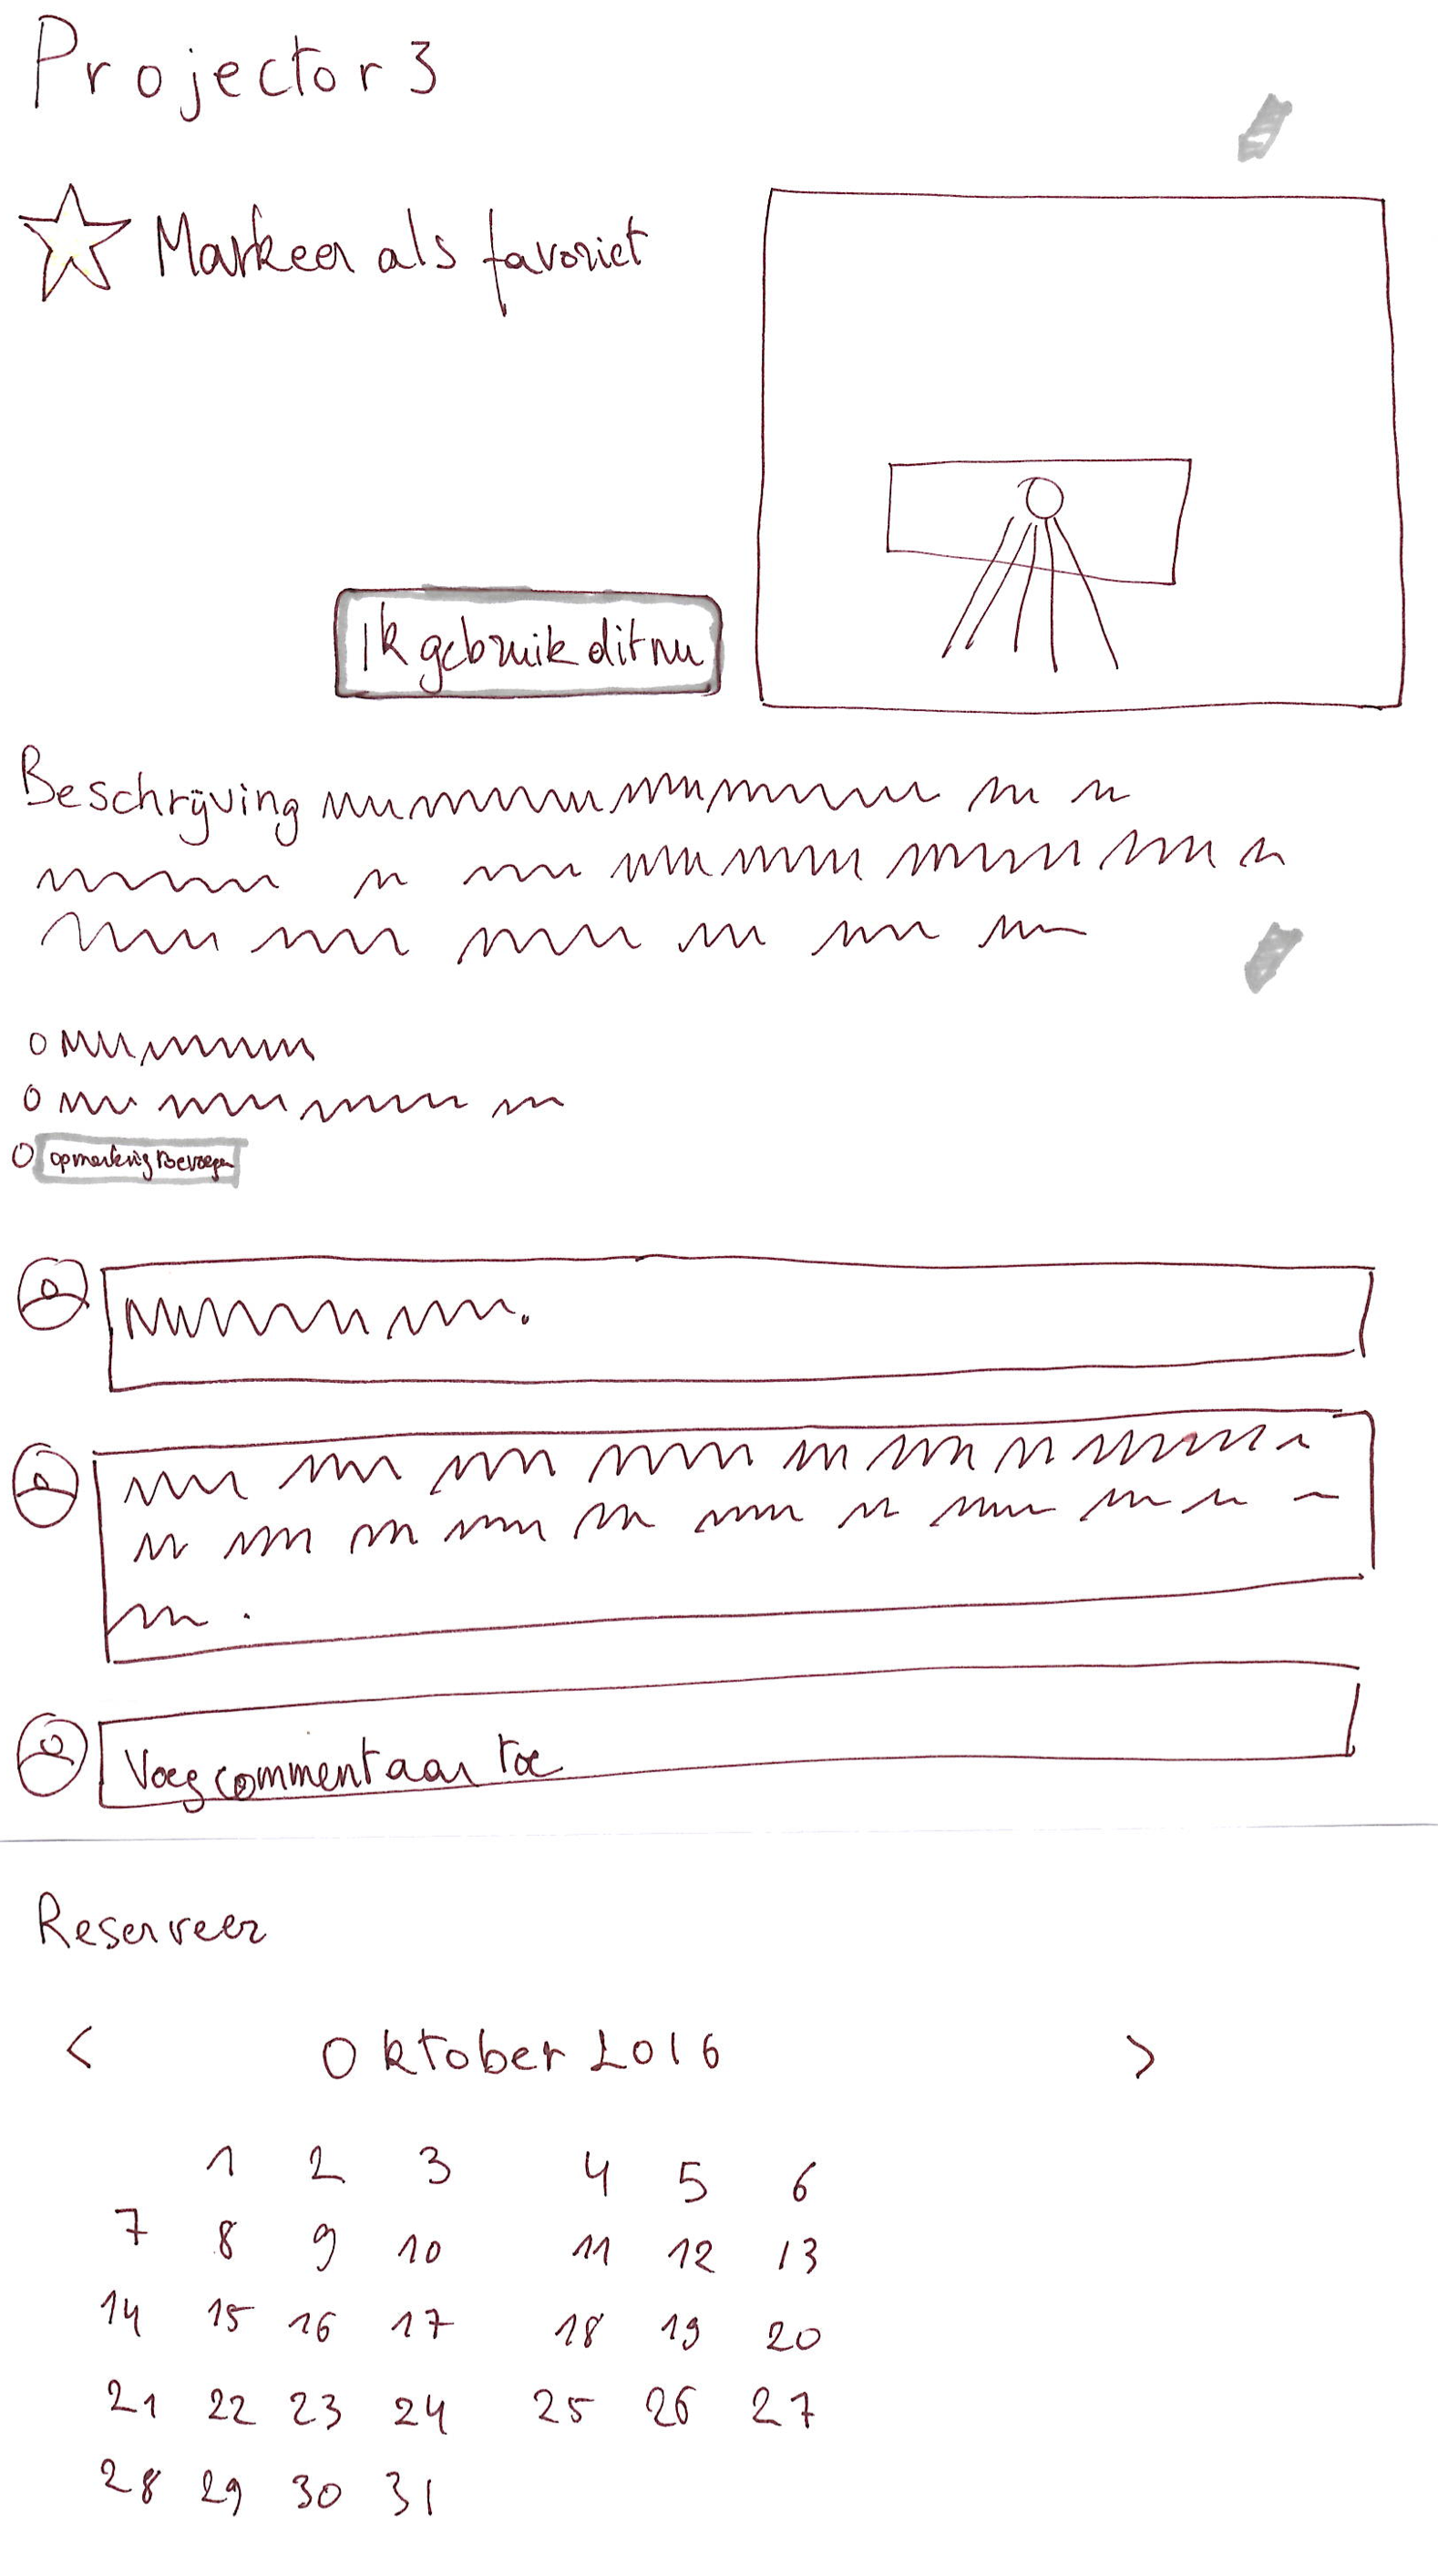 Projector 3
Markeer als favoriet
Ik gebruik dit nu
Beschrijving
opmerking toevoegen
Voeg commentaar toe
Reserveer
< Oktober 2016 >
1 2 3 4 5 6
7 8 9 10 11 12 13
14 15 16 17 18 19 20
21 22 23 24 25 26 27
28 29 30 31